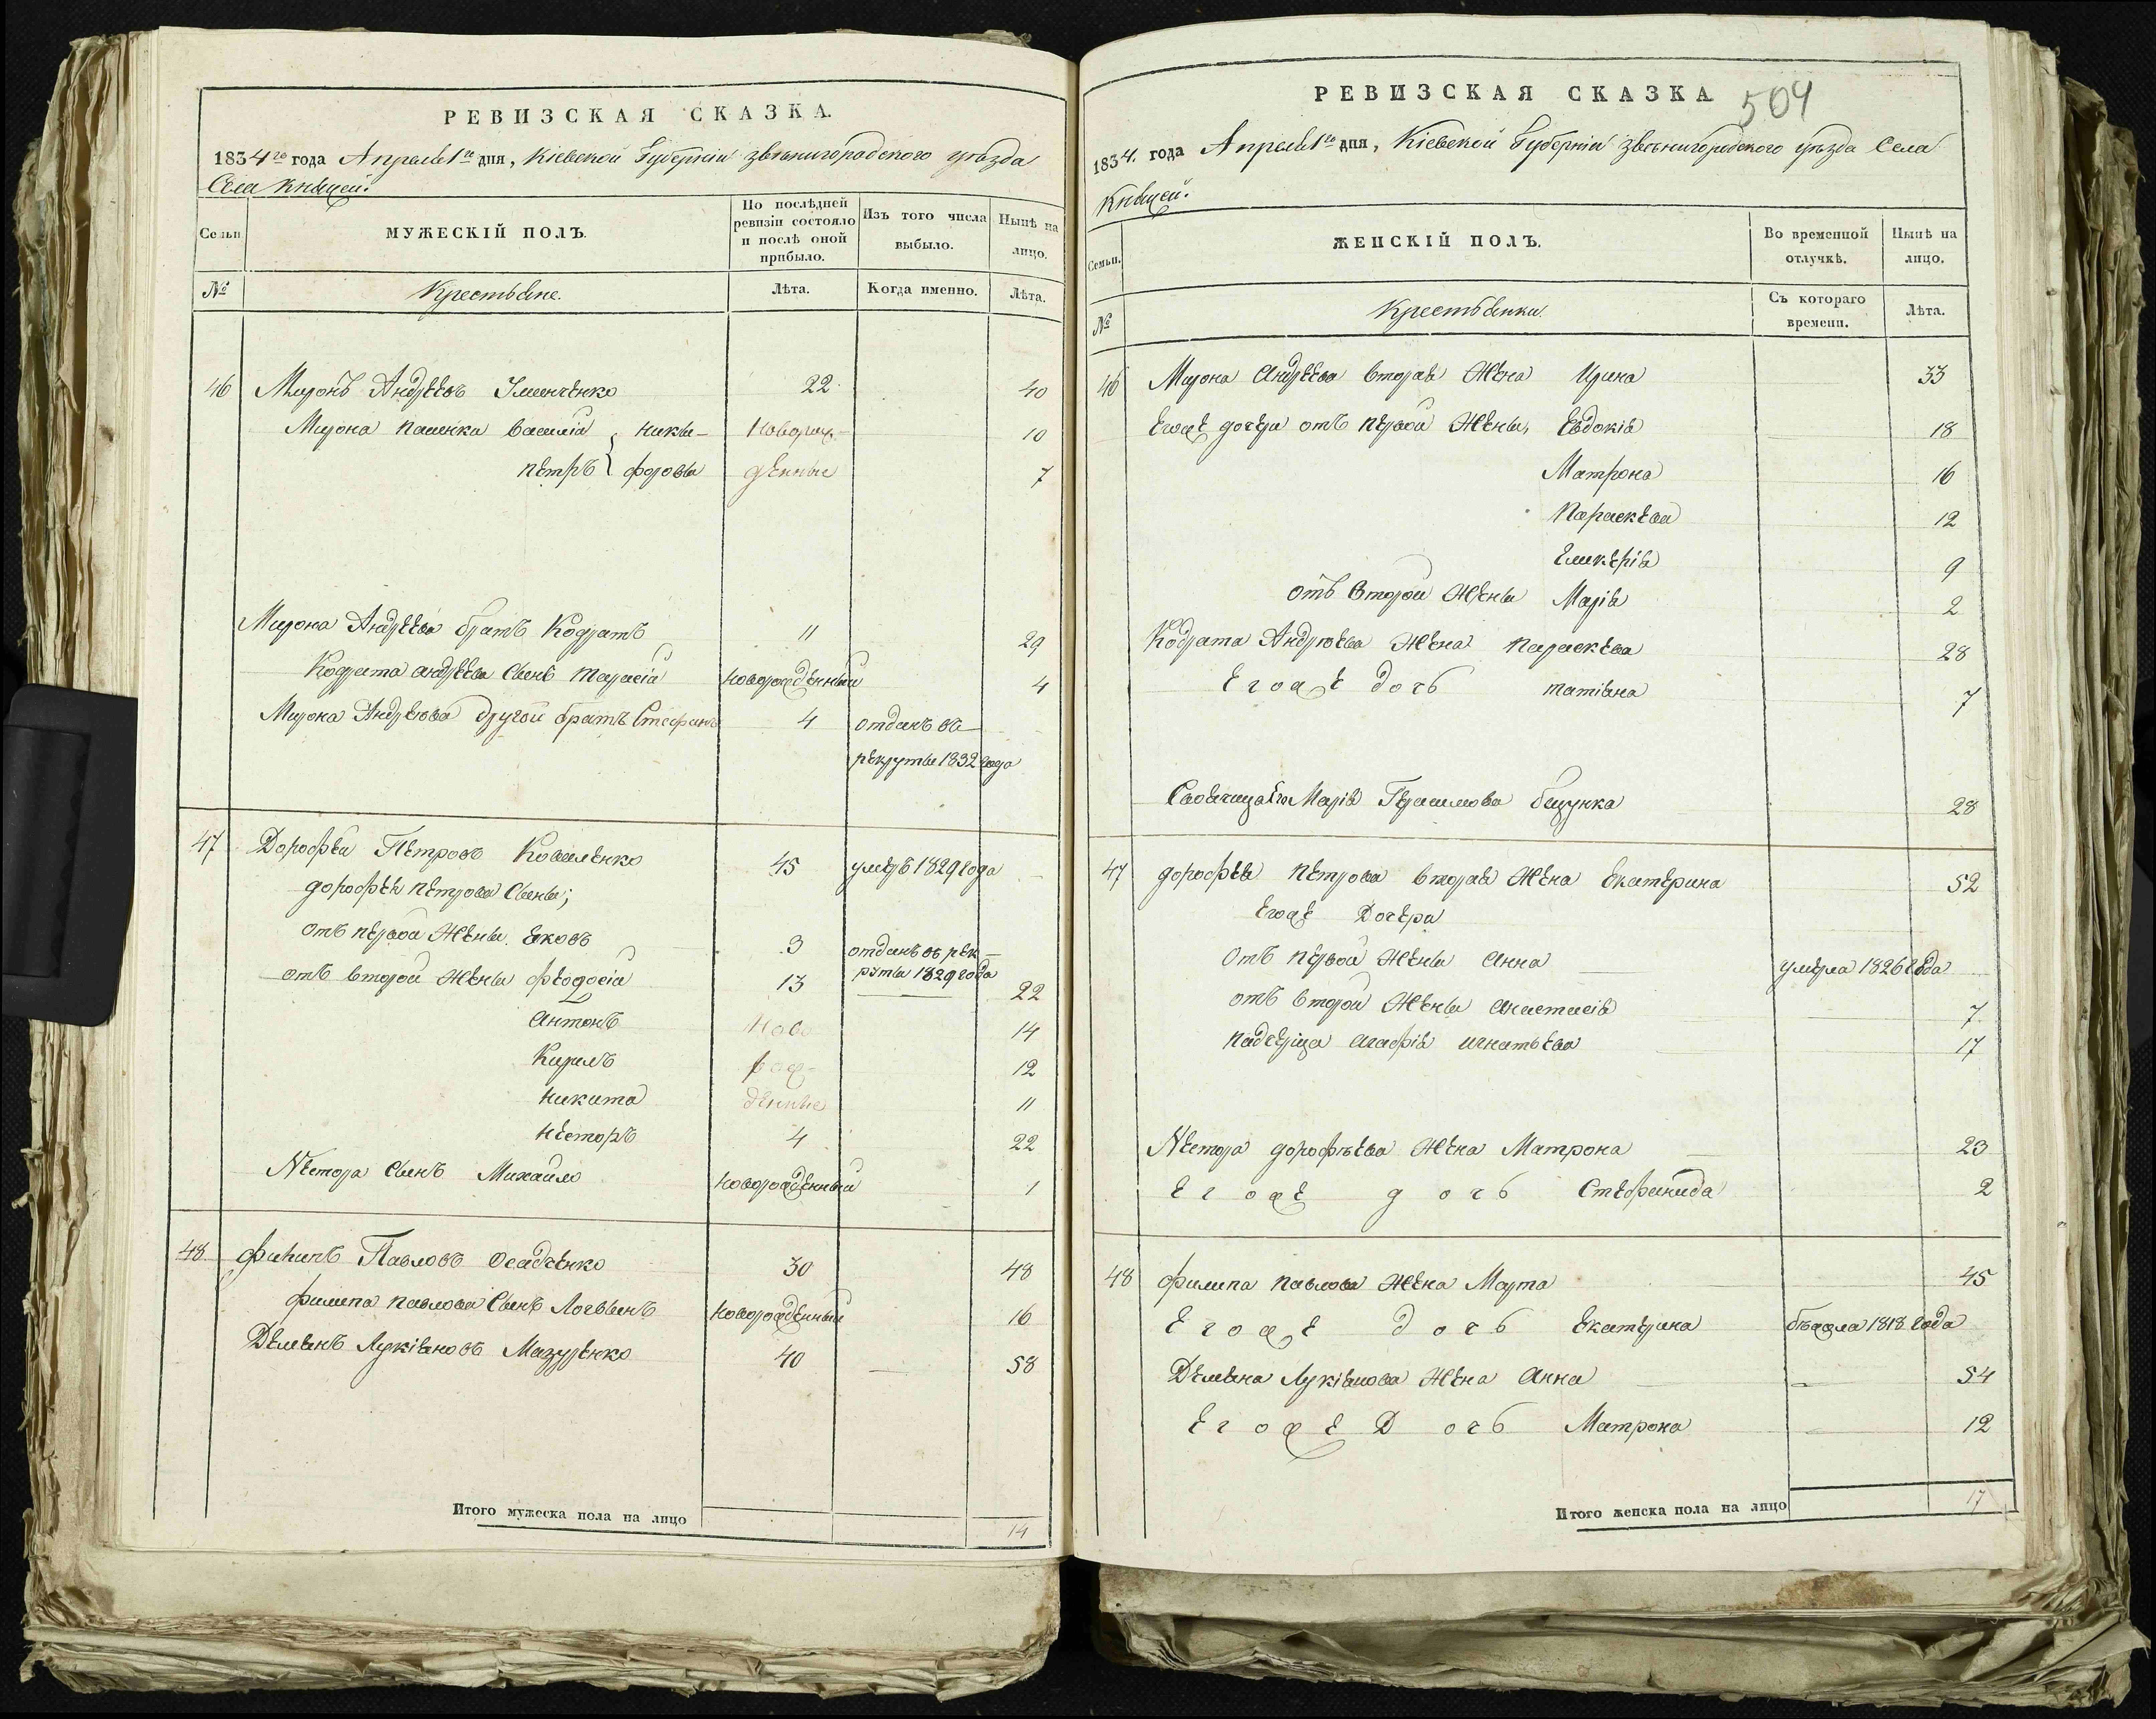 РЕВИЗСКАЯ СКАЗКА.
1834го года Апреля 1го дня, Кіевской Губерніи звенигородского уезда
Села Княжей.
Семьи
МУЖЕСКІЙ ПОЛЪ.
По послѣдней ревизіи состояло и послѣ оной прибыло.
Изъ того числа выбыло.
Нынѣ на лицо.
№
Крестьяне.
Лѣта.
Когда именно.
Лѣта.
46 Миронъ Андреевъ 22 40
Мирона Василій Ники- Новорож- 10
Петръ форовы денные 7
Мирона Андреева братъ Кодратъ 11 29
Кодрата андреева Сынъ Тарасій новорожденный 4
Мирона Андреева другой братъ Стефанъ 4 отданъ въ
рекруты 1832 года
47 Дорофей Петровъ Коваленко 45 умеръ 1829 года
дорофея петрова Сыны;
отъ первой Жены яковъ 3 отданъ въ рек-
руты 1829 года
отъ второй Жены феодосій 13 22
антонъ Ново 14
Кирилъ рож- 12
никита денные 11
несторъ 4 22
Нестора Сынъ Михайло новорожденный 1
48 филипъ Павловъ Осадченко 30 48
филипа павлова Сынъ Логвынъ новорожденный 16
Демянъ Лукіановъ Мазуренко 40 58
Итого мужеска пола на лицо
14
РЕВИЗСКАЯ СКАЗКА
504
1834. года Апреля 1го дня, Кіевской Губерніи звенигородского уезда Села
Княжей.
Семьи.
ЖЕНСКІЙ ПОЛЪ.
Во временной отлучкѣ.
Нынѣ на лицо.
№
Крестьянки.
Съ котораго времени.
Лѣта.
46 Мирона Андреева вторая Жена Ирина 33
Егоже дочери отъ первой Жены, Евдокія 18
Матрона 16
Параскева 12
Гликерія 9
отъ Второй Жены Марія 2
Кодрата Андреева Жена параскева 28
Егоже дочь татіана 7
Своячица Его Марія Герасимова 28
47 дорофея петрова вторая Жена Екатерина 52
Егоже Дочера
отъ первой Жены Анна умерла 1826 года
отъ второй Жены анастасія 7
падчерица агафія игнатьева 17
Нестора дорофѣева Жена Матрона 23
Егоже дочь Стефанида 2
48 филипа павлова Жена Марта 45
Егоже дочь Екатерина бѣжала 1818 года
Демяна Лукіанова Жена Анна 54
Егоже Дочь Матрона 12
Итого женска пола на лицо
17